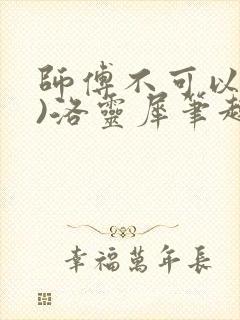 師傅不可以
)洛靈犀筆趣
幸福萬年長